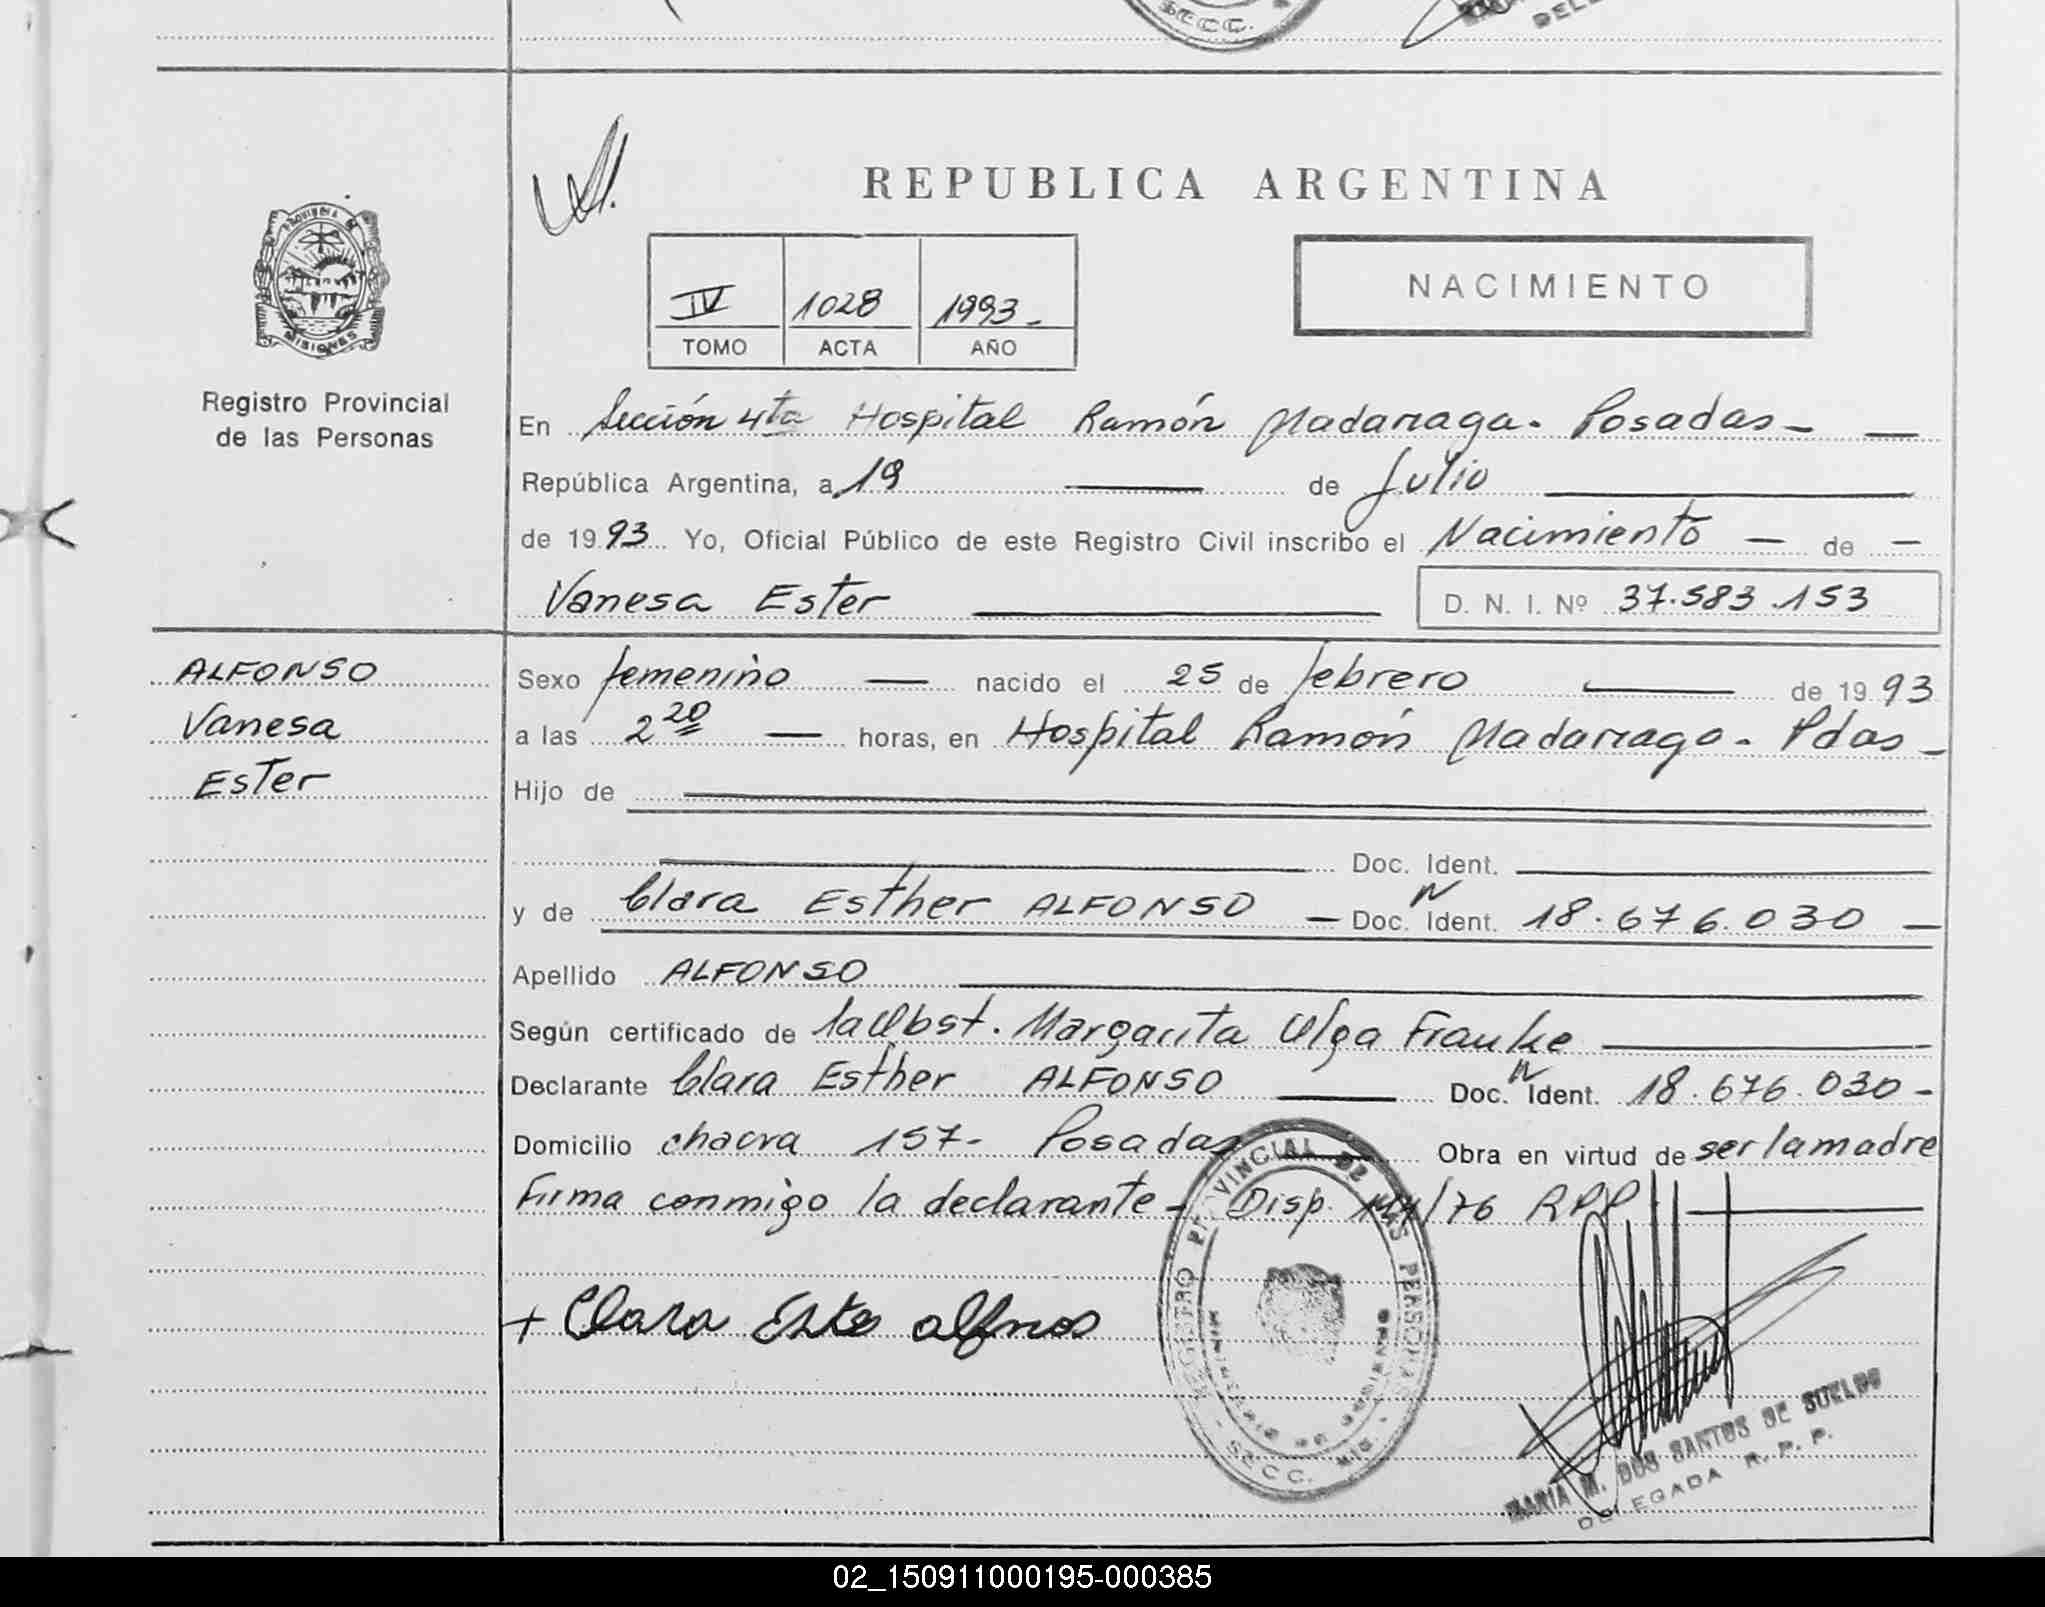 SECC.
DEL
REPUBLICA ARGENTINA
PROVINCIA DE
MISIONES
Registro Provincial
de las Personas
IV 1028 1993-
TOMO ACTA AÑO
NACIMIENTO
En Sección 4ta Hospital Ramón Madariaga. Posadas-
República Argentina, a 19 de Julio
de 1993 Yo, Oficial Público de este Registro Civil inscribo el Nacimiento - de -
Vanesa Ester
D. N. I. Nº 37.583.153
ALFONSO
Vanesa
Ester
Sexo femenino nacido el 25 de febrero de 1993
a las 2 20 horas, en Hospital Ramón Madariaga. Pdas-
Hijo de
Doc. Ident.
y de Clara Esther ALFONSO - Doc. N Ident. 18.676.030-
Apellido ALFONSO
Según certificado de la Obst. Margarita Olga Franke
Declarante Clara Esther ALFONSO Doc. N Ident. 18.676.030-
Domicilio chacra 157- Posadas Obra en virtud de ser la madre
Firma conmigo la declarante- Disp. 144/76 RPP.
+ Clara Este alfnos
REGISTRO PROVINCIAL DE LAS PERSONAS
MINISTERIO DE GOBIERNO
SECC. MIS.
MARIA M. DOS SANTOS DE SUELDO
DELEGADA R. P. P.
02_150911000195-000385